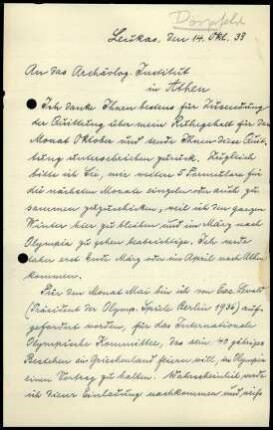 Dörpfeld
Leukas, den 14. Okt. 33
An das Archäolog. Institut
in Athen
Ich danke Ihnen bestens für Zusendung
der Quittung über mein Ruhegehalt für den
Monat Oktober und sende Ihnen diese Quit-
tung unterschrieben zurück. Zugleich
bitte ich Sie, mir weitere 5 Formulare für
die nächsten Monate einzeln oder auch zu-
sammen zuzuschicken, weil ich den ganzen
Winter hier zu bleiben und im März nach
Olympia zu gehen beabsichtige. Ich werde
daher erst Ende März oder im April nach Athen
kommen.
Für den Monat Mai bin ich von Exc. Lewald
(Präsident der Olymp. Spiele Berlin 1936) auf-
gefordert worden, für das Internationale
Olympische Kommittee, das sein 40 jähriges
Bestehen in Griechenland feiern will, in Olympia
einen Vortrag zu halten. Wahrscheinlich werde
ich dieser Einladung nachkommen und